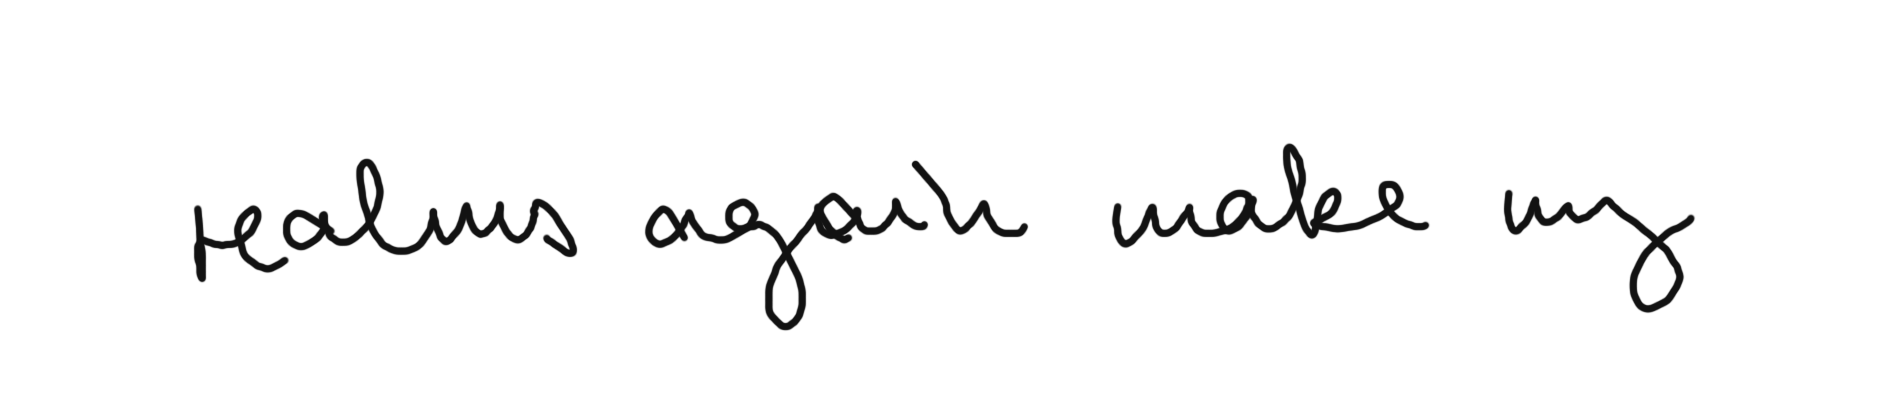 realms again make my